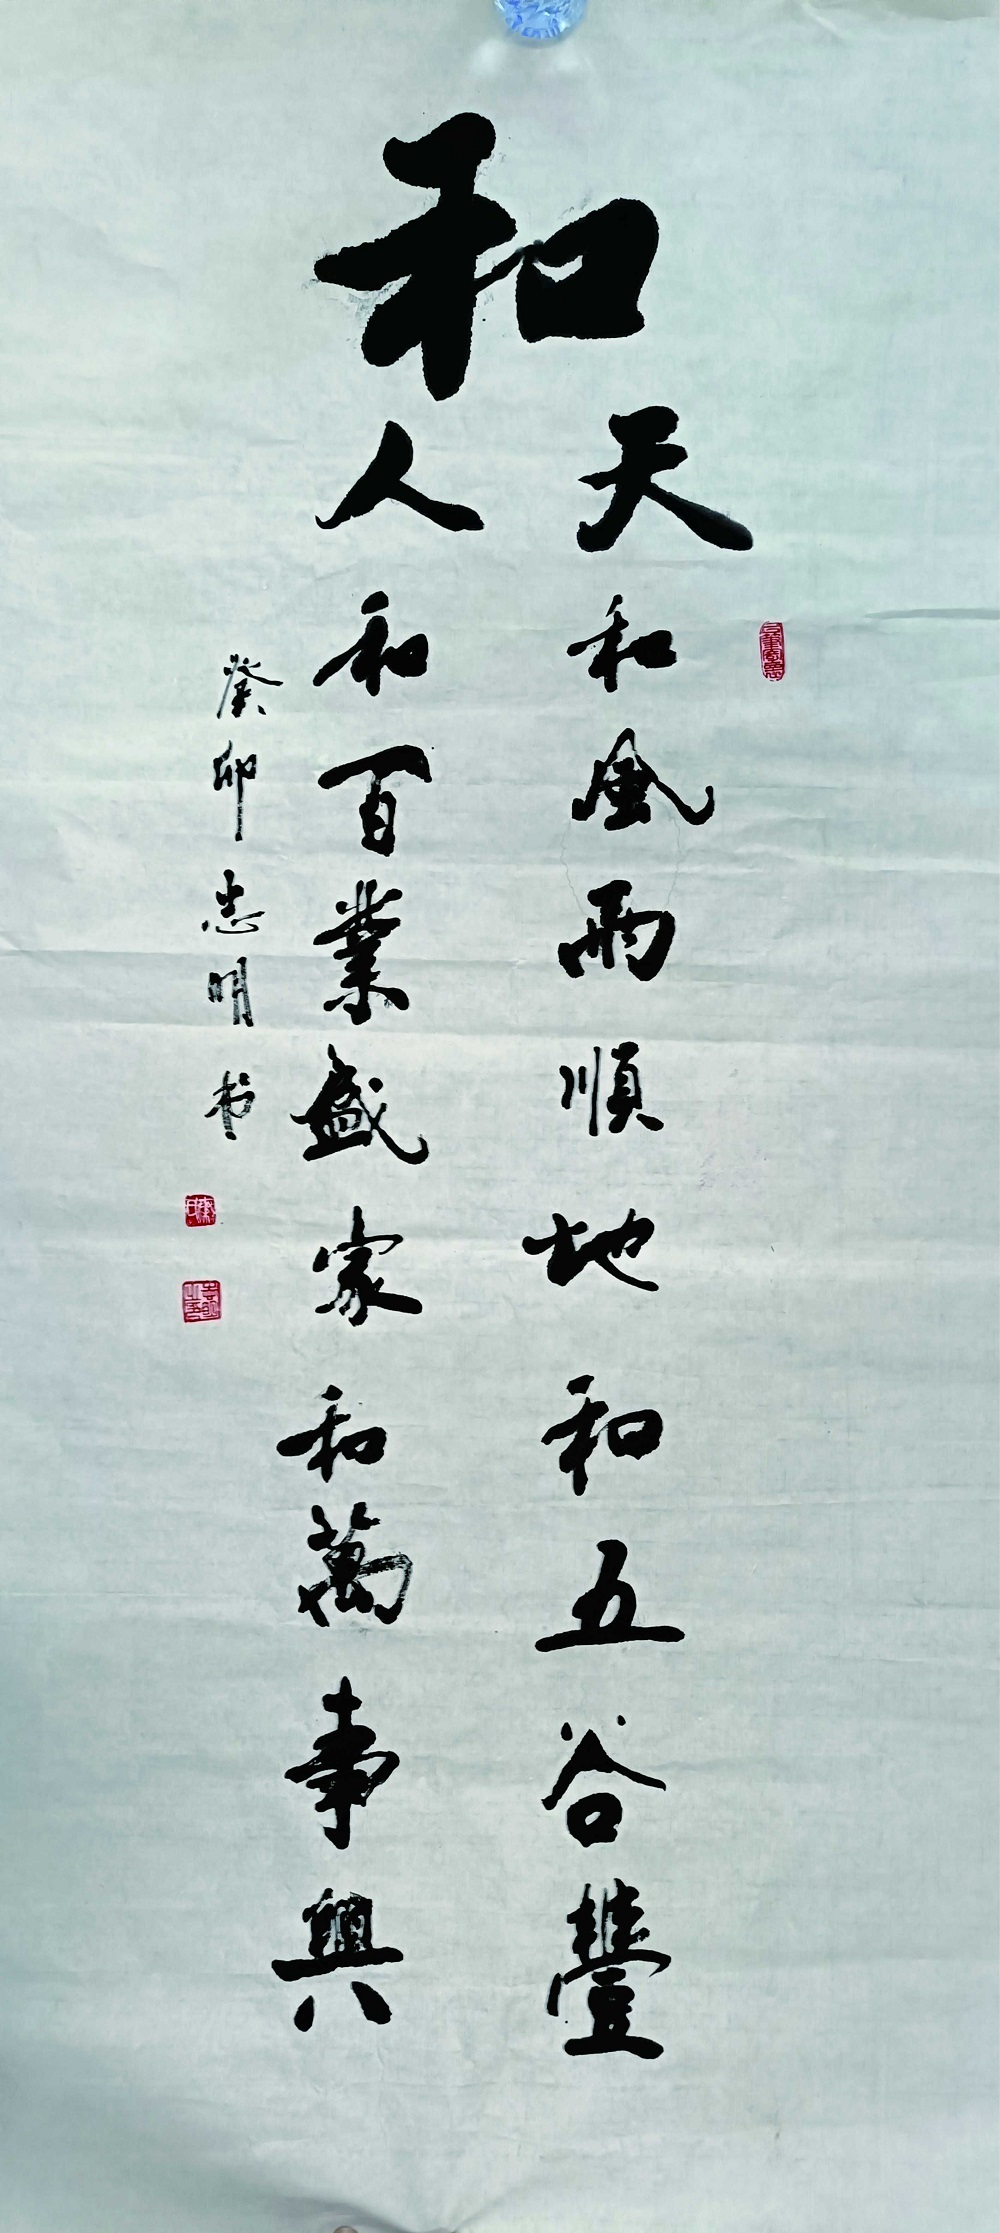 和
天和風雨順地和五谷豐
人和百業盛家和萬事興
癸卯忠明书